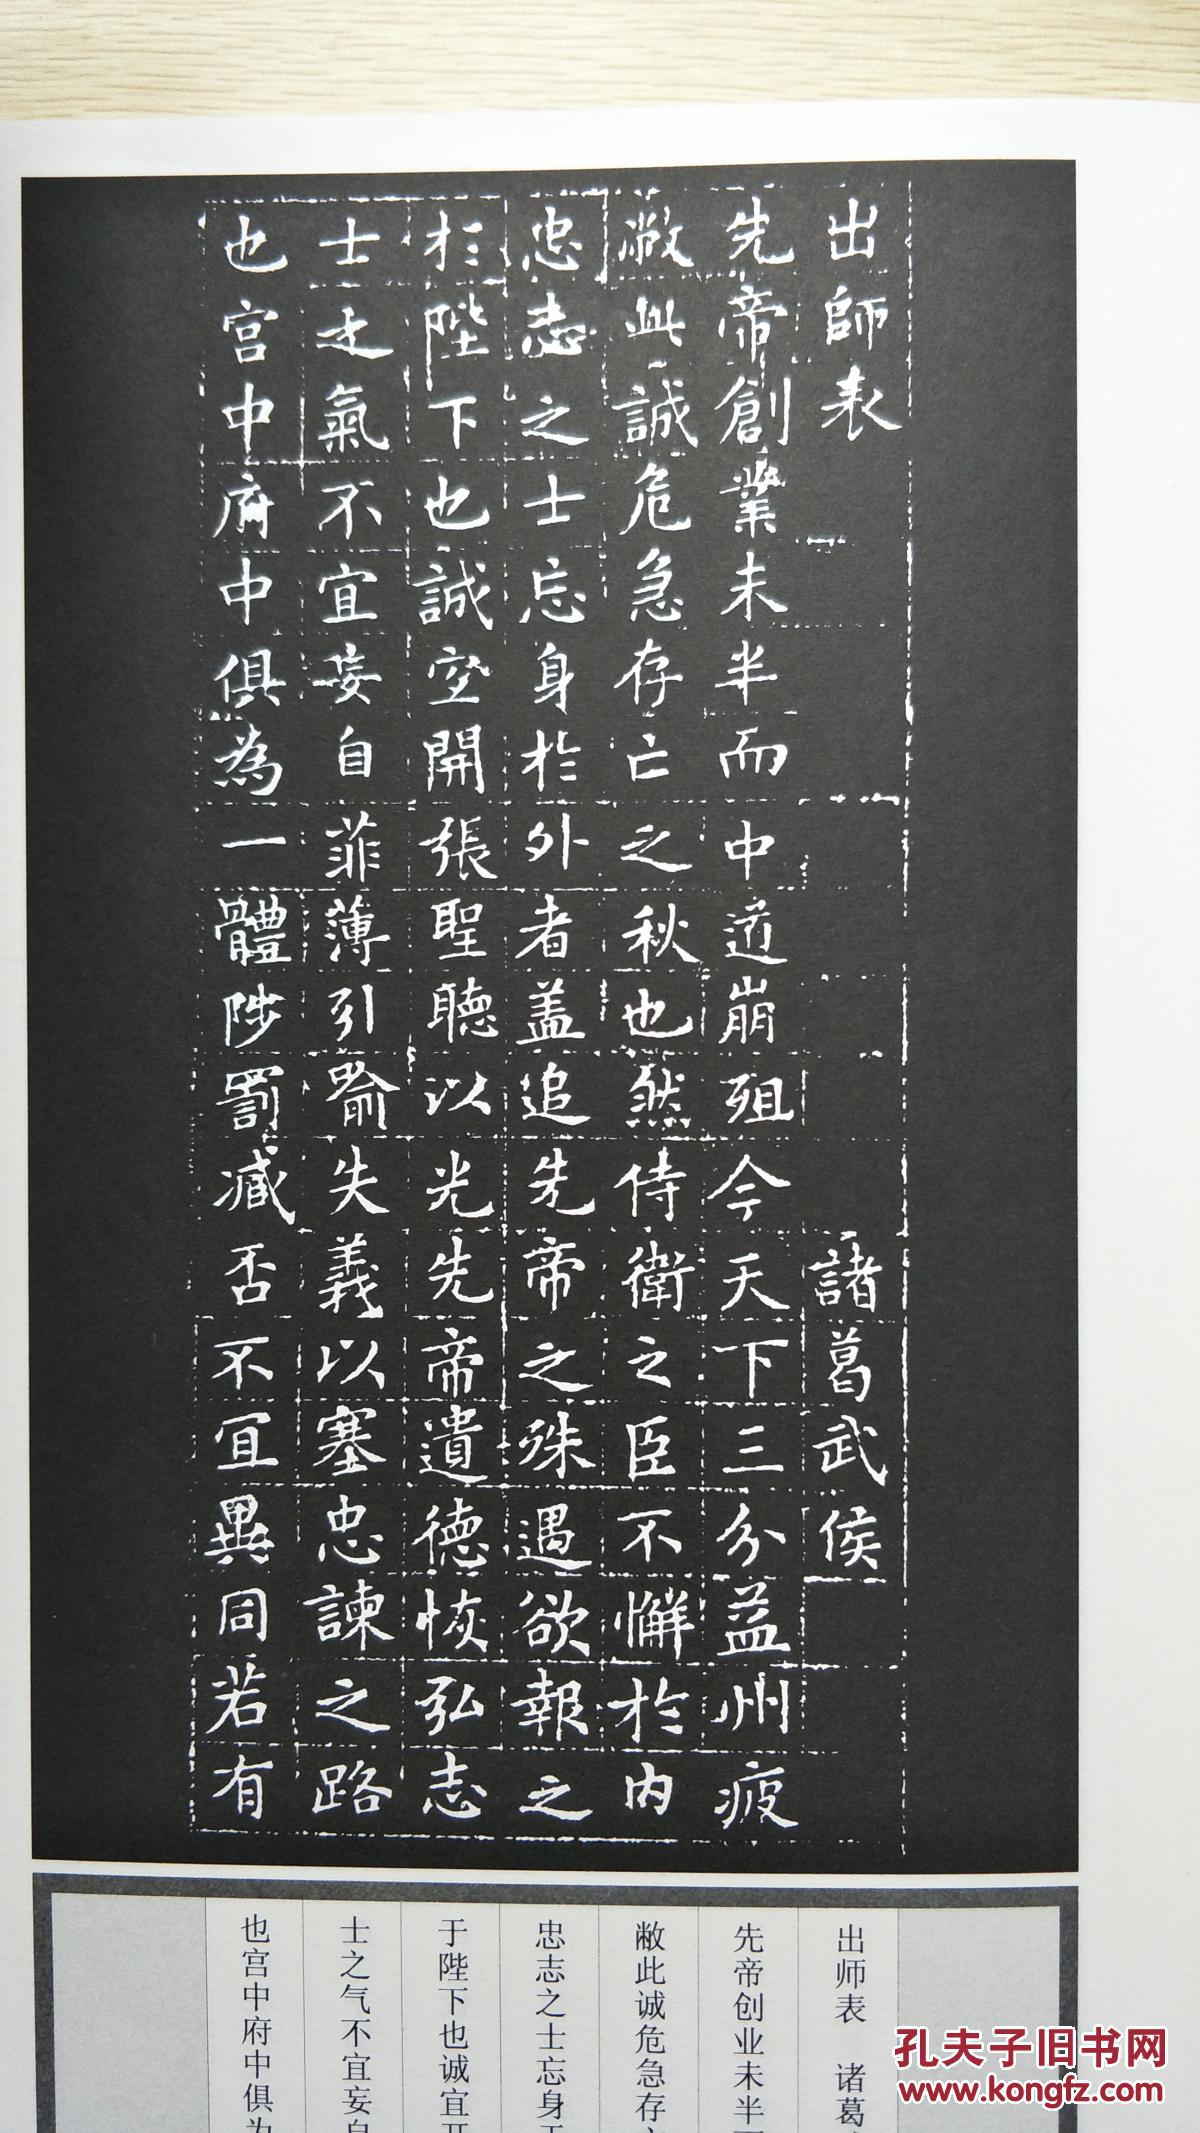 出師表 諸葛武侯
先帝創業未半而中道崩殂今天下三分益州疲
敝此誠危急存亡之秋也然侍衛之臣不懈於内
忠志之士忘身於外者盖追先帝之殊遇欲報之
於陛下也誠宜開張聖聽以光先帝遺德恢弘志
士之氣不宜妄自菲薄引喻失義以塞忠諫之路
也宫中府中俱為一體陟罰臧否不宜異同若有
出师表 诸葛
先帝创业未半
敝此诚危急存
忠志之士忘身
于陛下也诚宜开
士之气不宜妄自
也宫中府中俱为
孔夫子旧书网
www.kongfz.com